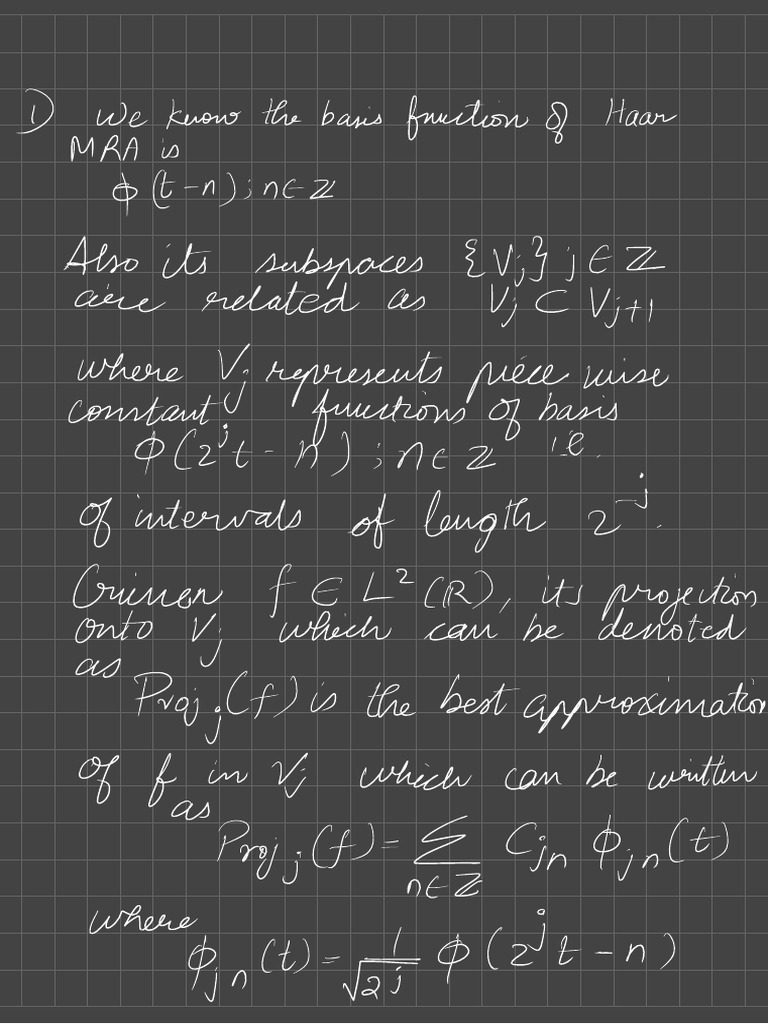 1) We know the basis function of Haar
MRA is
ϕ(t-n); n∈ℤ
Also its subspaces {Vj} j∈ℤ
are related as Vj ⊂ Vj+1
where Vj represents piece wise
constant functions of basis
ϕ(2^j t - n); n∈ℤ i.e.
of intervals of length 2^-j.
Given f ∈ L²(ℝ), its projection
onto Vj which can be denoted
as
Proj j(f) is the best approximation
of f in Vj which can be written
as
Proj j(f) = Σ n∈ℤ Cjn ϕjn(t)
where
ϕjn(t) = 1/√2^j ϕ(2^j t - n)